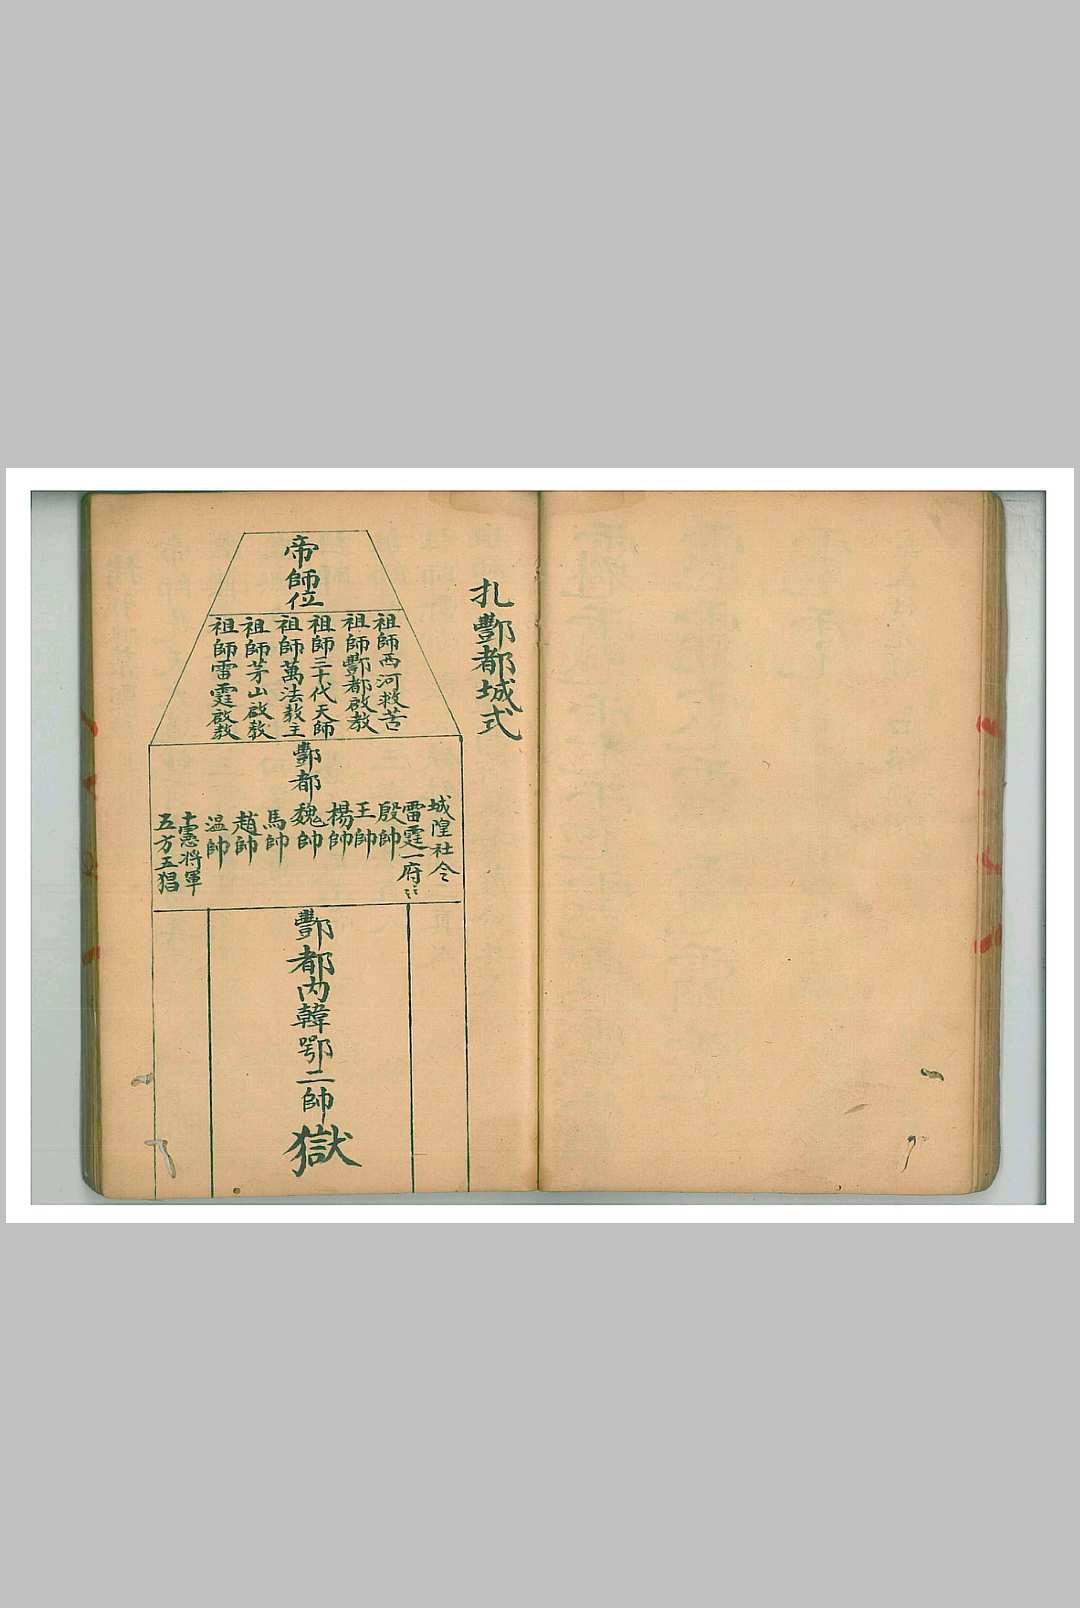 扎酆都城式
帝師位
祖師西河救苦
祖師酆都啟教
祖師三十代天師
祖師萬法教主
祖師茅山啟教
祖師雷霆啟教
酆都
城隍社令
雷霆一府
殷帥
王帥
楊帥
魏帥
馬帥
趙帥
溫帥
土憲將軍
五方五猖
酆都內韓鄂二帥
獄